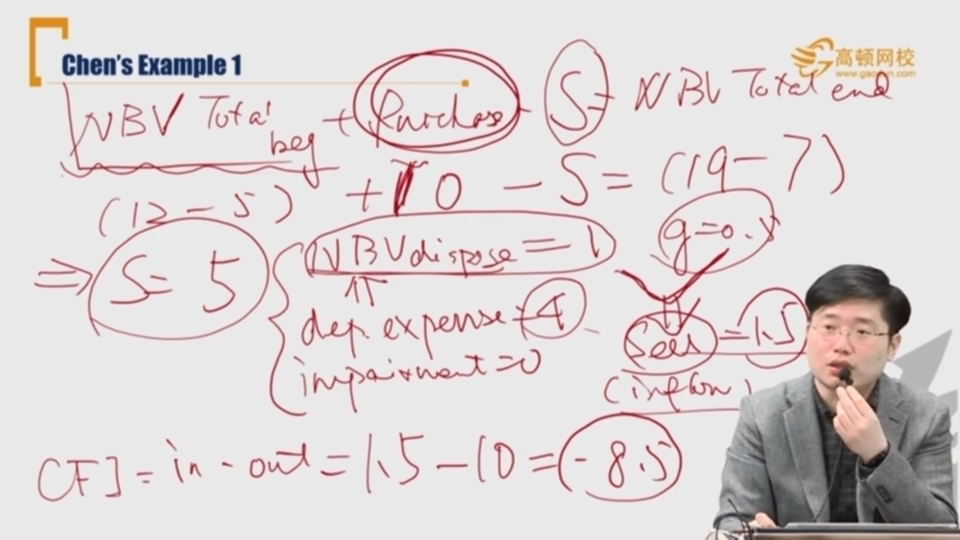 Chen's Example 1
高顿网校
www.gaodun.com
NBV Total beg + Purchase - S = NBV Total end
(12-5) + 10 - S = (19-7)
⇒ S = 5
NBV dispose = 1
g = 0.5
dep. expense = 4
Sell = 1.5
impairment = 0
(inflow)
CFI = in - out = 1.5 - 10 = -8.5